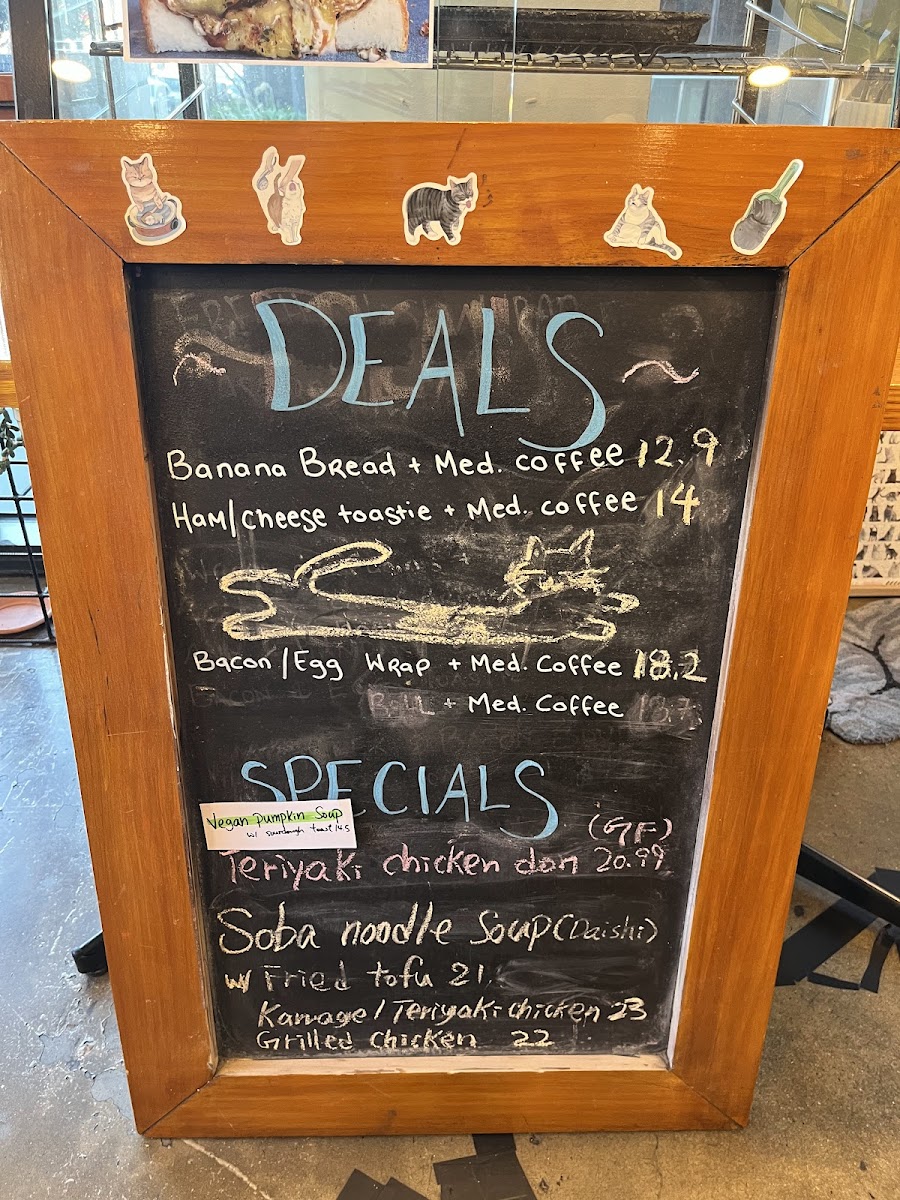 DEALS
Banana Bread + Med. coffee 12.9
Ham/cheese toastie + Med. coffee 14
Bacon/Egg Wrap + Med. Coffee 18.2
+ Med. Coffee
SPECIALS
Vegan pumpkin Soup
w/ sourdough toast 14.5
(GF)
Teriyaki chicken don 20.99
Soba noodle Soup (Daishi)
w/ Fried tofu 21
Karrage/Teriyaki chicken 23
Grilled chicken 22